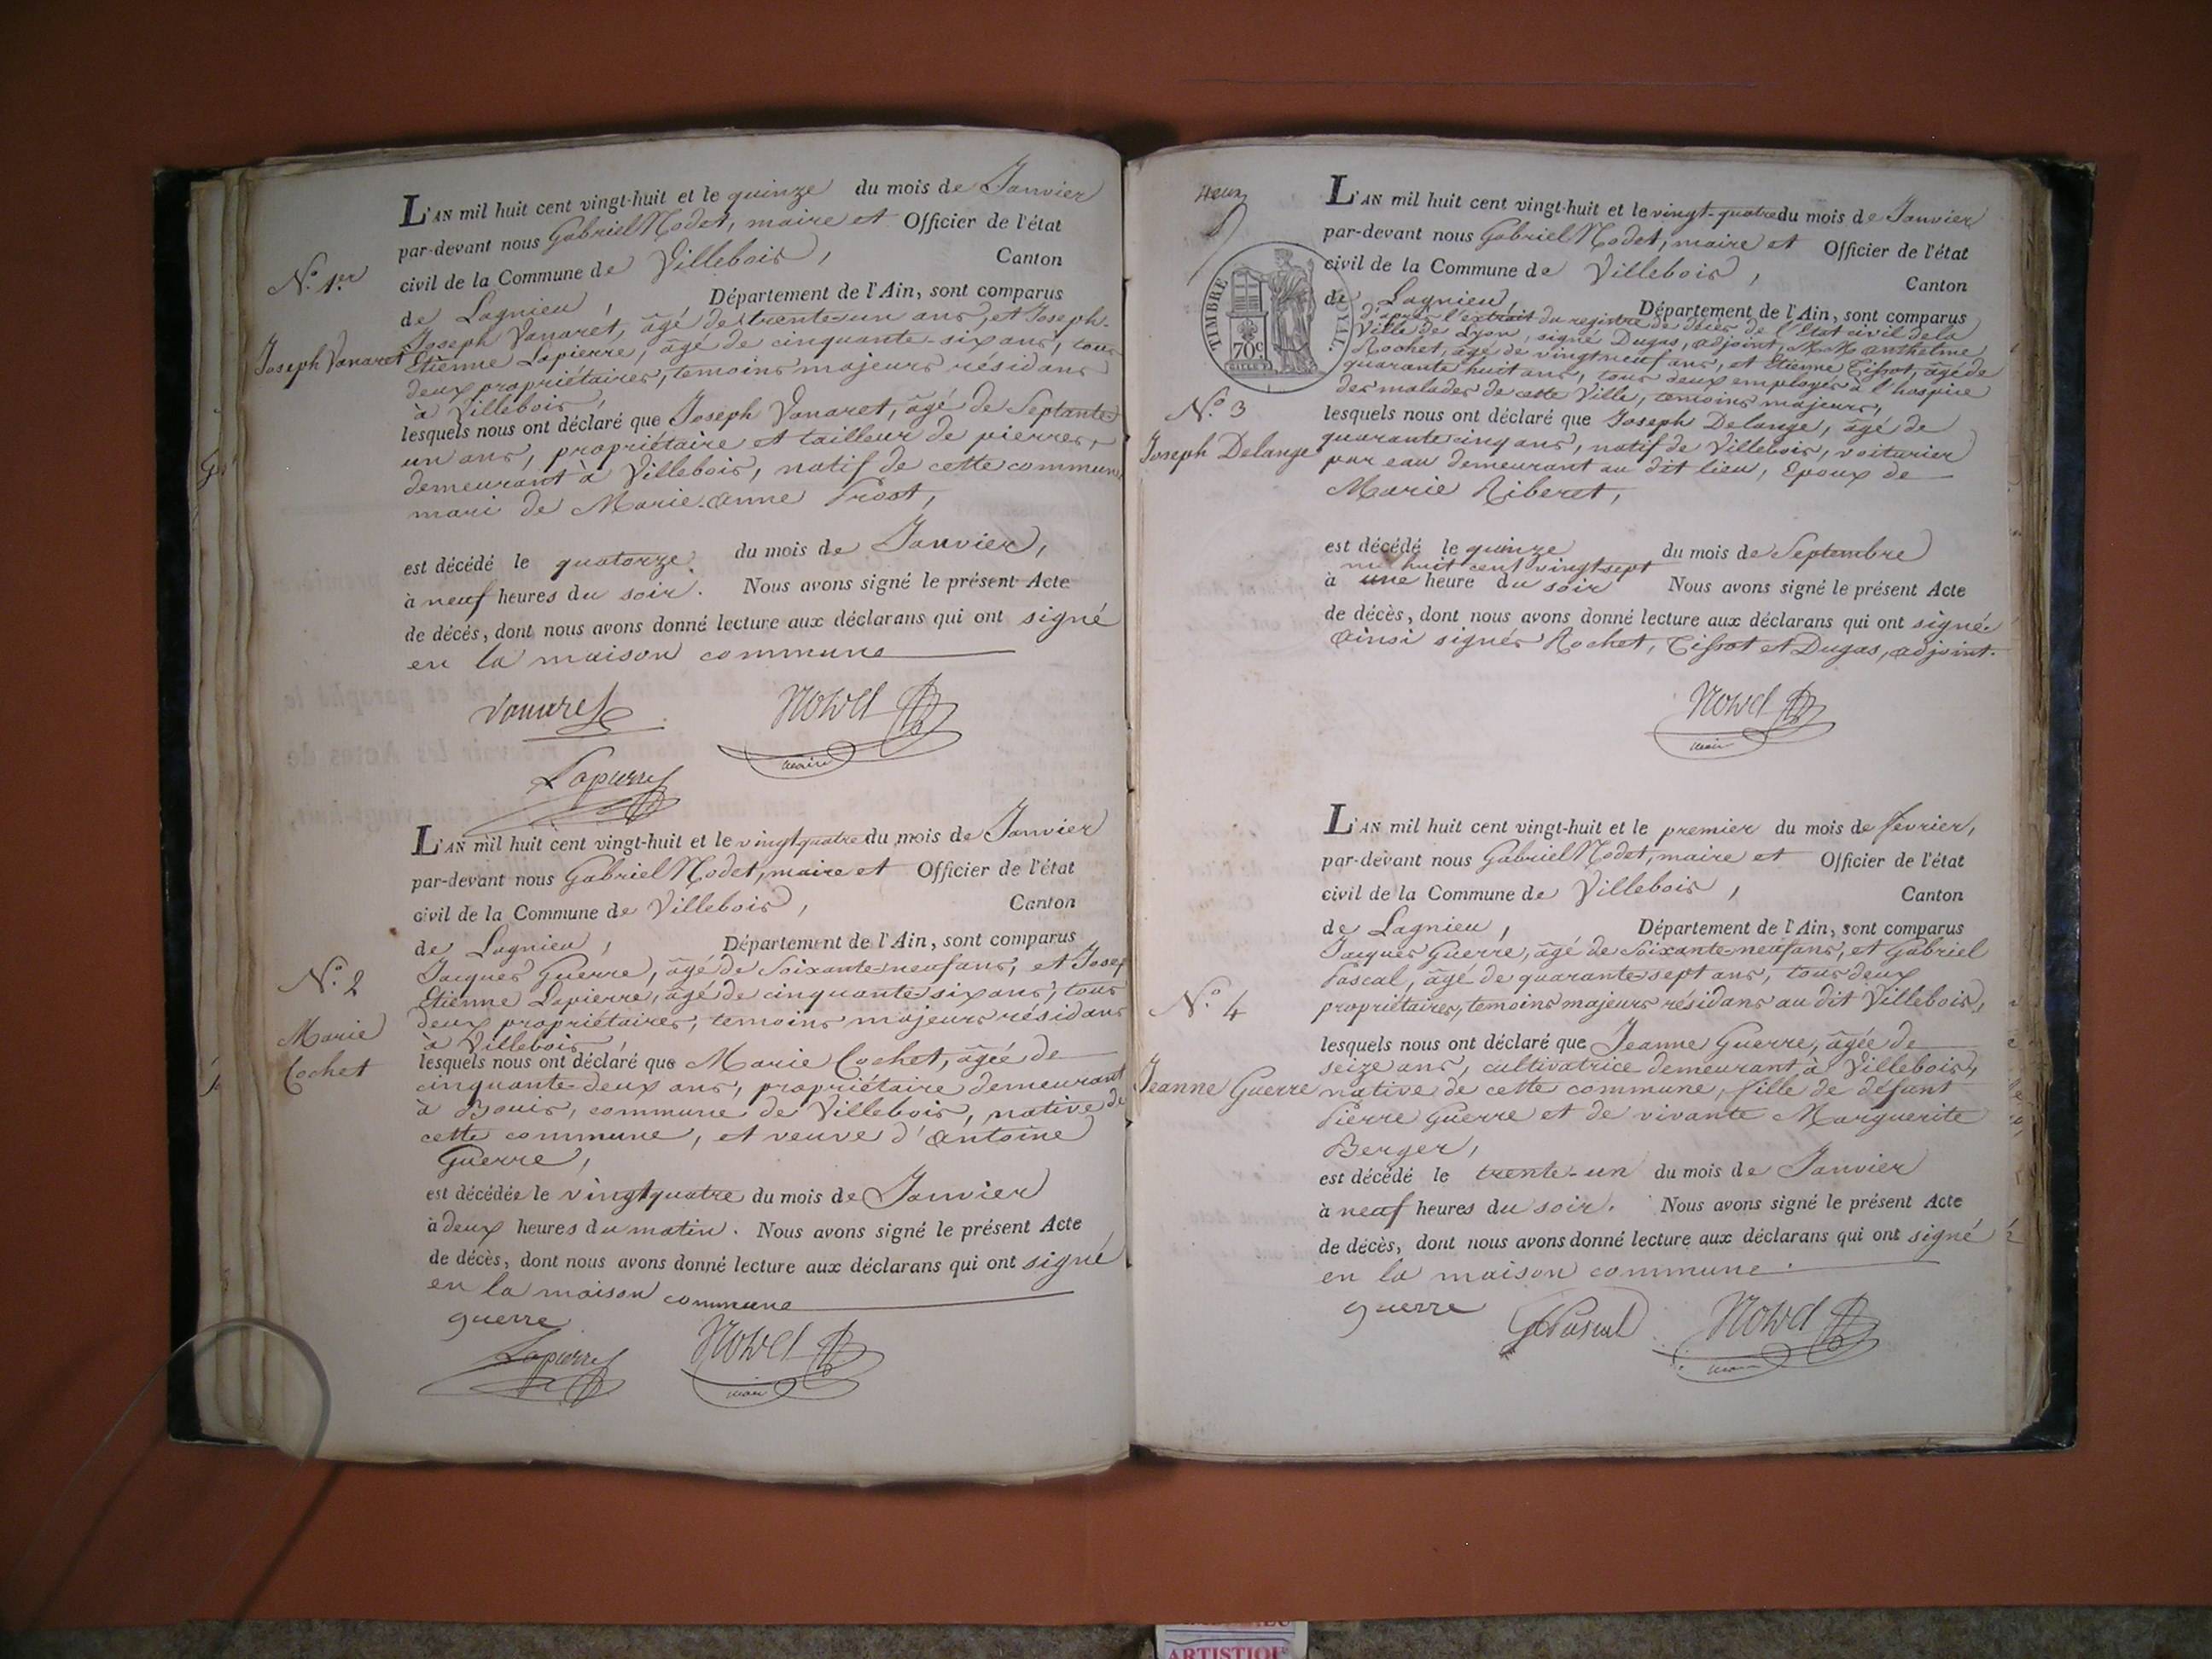 L'AN mil huit cent vingt-huit et le quinze du mois de Janvier
par-devant nous Gabriel Nodet, maire et Officier de l'état
civil de la Commune de Villebois, Canton
de Lagnieu, Département de l'Ain, sont comparus
N.º 1.er
Joseph Vanaret
Joseph Vanaret, âgé de trente-un ans, et Joseph-
Etienne Lapierre, âgé de cinquante-six ans, tous
deux propriétaires, temoins majeurs résidans
à Villebois,
lesquels nous ont déclaré que Joseph Vanaret, âgé de Septante-
un ans, propriétaire et tailleur de pierres,
demeurant à Villebois, natif de cette commune,
mari de Marie-anne Prost,
est décédé le quatorze du mois de Janvier,
à neuf heures du soir. Nous avons signé le présent Acte
de décés, dont nous avons donné lecture aux déclarans qui ont signé
en la maison commune
Vanaret
Nodet
maire
Lapierre
L'AN mil huit cent vingt-huit et le vingt quatre du mois de Janvier
par-devant nous Gabriel Nodet, maire et Officier de l'état
civil de la Commune de Villebois, Canton
de Lagnieu, Département de l'Ain, sont comparus
N.º 2
Marie
Cochet
Jacques Guerre, âgé de Soixante-neuf ans, et Josep
Etienne Lapierre, âgé de cinquante-six ans, tous
deux propriétaires, temoins majeurs résidans
à Villebois
lesquels nous ont déclaré que Marie Cochet, âgée de
cinquante-deux ans, propriétaire demeurant
à Bouis, commune de Villebois, native de
cette commune, et veuve d'antoine
Guerre,
est décédée le vingt quatre du mois de Janvier
à deux heures du matin. Nous avons signé le présent Acte
de décès, dont nous avons donné lecture aux déclarans qui ont signé
en la maison commune
guerre
Lapierre
Nodet
maire
deux
TIMBRE ROYAL.
70c
L'AN mil huit cent vingt-huit et le vingt-quatre du mois de Janvier
par-devant nous Gabriel Nodet, maire et Officier de l'état
civil de la Commune de Villebois, Canton
de Lagnieu, Département de l'Ain, sont comparus
d'après l'extrait du registre de décès de l'Etat civil de la
Ville de Lyon, signé Dugas, adjoint, M.M. anthelme
Rochet, âgé de vingt neuf ans, et Etienne Tissot, âgé de
quarante huit ans, tous deux employés à l'hospice
des malades de cette Ville, temoins majeurs,
N.º 3
Joseph Delange
lesquels nous ont déclaré que Joseph Delange, âgé de
quarante cinq ans, natif de Villebois, voiturier
par eau demeurant au dit lieu, Epoux de
Marie Riberet,
est décédé le quinze du mois de Septembre
mi huit cent vingt sept
à une heure du soir Nous avons signé le présent Acte
de décès, dont nous avons donné lecture aux déclarans qui ont signé.
ainsi signés Rochet, Tissot et Dugas, adjoint.
Nodet
maire
L'AN mil huit cent vingt-huit et le premier du mois de février,
par-devant nous Gabriel Nodet, maire et Officier de l'état
civil de la Commune de Villebois, Canton
de Lagnieu, Département de l'Ain, sont comparus
Jacques Guerre, âgé de Soixante-neuf ans, et Gabriel
Pascal, âgé de quarante sept ans, tous deux
propriétaires, temoins majeurs résidans au dit Villebois,
N.º 4
Jeanne Guerre
lesquels nous ont déclaré que Jeanne Guerre, âgée de
seize ans, cultivatrice demeurant à Villebois,
native de cette commune, fille de défunt
Pierre Guerre et de vivante Marguerite
Berger,
est décédé le trente-un du mois de Janvier
à neuf heures du soir. Nous avons signé le présent Acte
de décès, dont nous avons donné lecture aux déclarans qui ont signé
en la maison commune.
guerre
GPascal
Nodet
maire
ARTISTIQU